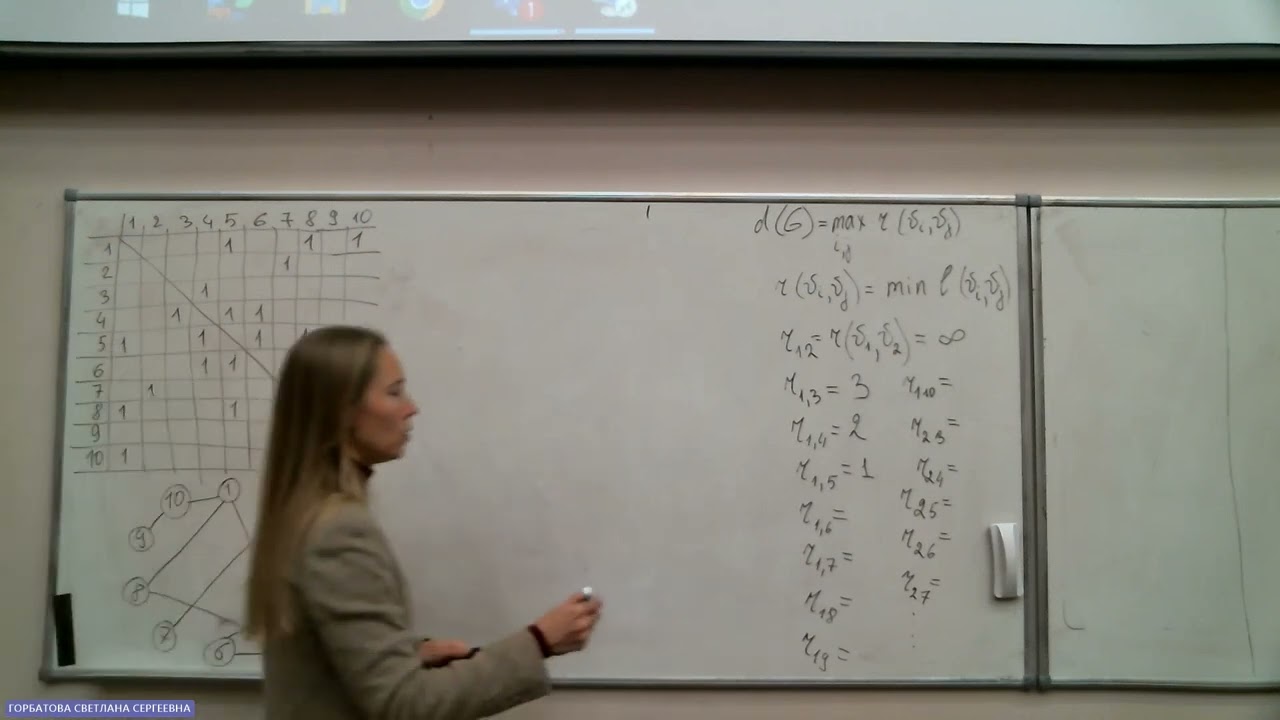 1
1 2 3 4 5 6 7 8 9 10
1 1 1 1
2 1
3 1
4 1 1 1
5 1 1 1
6 1 1
7 1
8 1 1
9
10 1
10 1
9
8
7
6
d(G) = max r(v_i, v_j)
i,j
r(v_i, v_j) = min l(v_i, v_j)
r_12 = r(v_1, v_2) = ∞
r_1,3 = 3 r_110 =
r_1,4 = 2 r_23 =
r_1,5 = 1 r_24 =
r_1,6 = r_25 =
r_1,7 = r_26 =
r_18 = r_27 =
r_19 =
ГОРБАТОВА СВЕТЛАНА СЕРГЕЕВНА